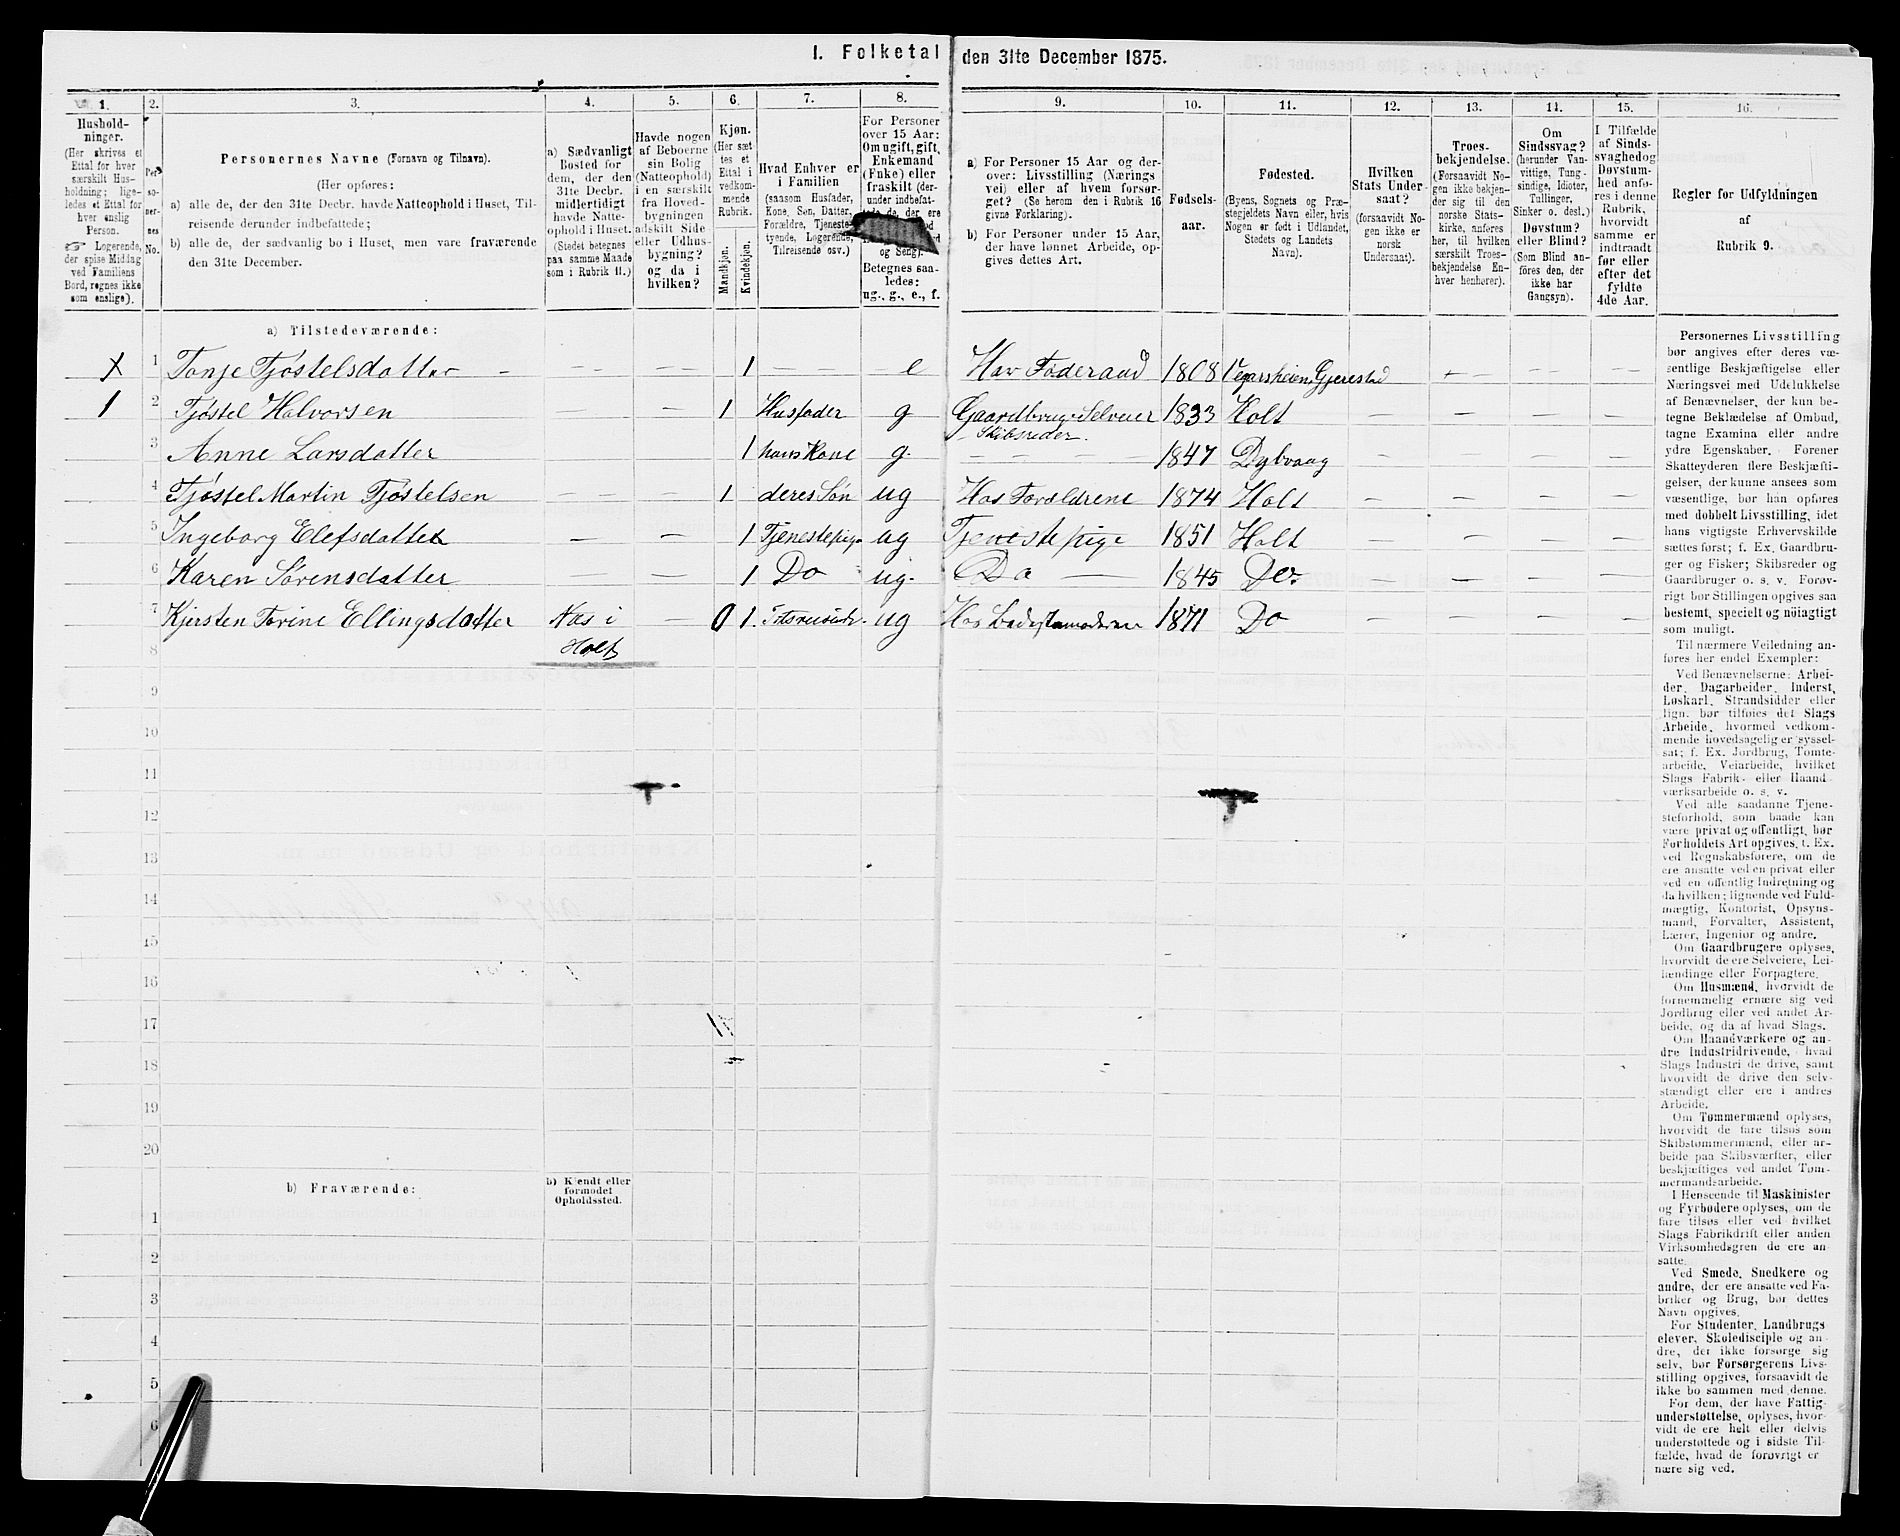 1. Folketal den 31te December 1875.
1.
Hushold-
ninger.
(Her skrives et
Ettal for hver
særskilt Hus-
holdning; lige-
ledes et Ettal for
hver enslig
Person.
☞ Logerende,
der spise Middag
ved Familiens
Bord, regnes ikke
som enslige).
2.
Per-
so-
ner-
nes
No.
3.
Personernes Navne (Fornavn og Tilnavn).
(Her opføres:
a) alle de, der den 31te Decbr. havde Natteophold i Huset, Til-
reisende derunder indbefattede;
b) alle de, der sædvanlig bo i Huset, men vare fraværende
den 31te December.
4.
a) Sædvanligt
Bosted for
dem, der den
31te Decbr.
midlertidigt
havde Natte-
ophold i Huset.
(Stedet betegnes
paa samme Maade
som i Rubrik 11.)
5.
Havde nogen
af Beboerne
sin Bolig
(Natteophold)
i en særskilt
fra Hoved-
bygningen
adskilt Side-
eller Udhus-
bygning?
og da i
hvilken?
6.
Kjøn.
(Her sæt-
tes et
Ettal i
vedkom-
mende
Rubrik.
Mandkjøn.
Kvindekjøn.
7.
Hvad Enhver er
i Familien
(saasom Husfader,
Kone, Søn, Datter,
Forældre, Tjeneste-
tyende, Logerende,
Tilreisende osv.)
8.
For Personer
over 15 Aar:
Om ugift, gift,
Enkemand
(Enke) eller
fraskilt (der-
under indbefat-
tede de, der ere
og Seng).
Betegnes saa-
ledes:
ug., g., e., f.
9.
a) For Personer 15 Aar og der-
over: Livsstilling (Nærings
vei) eller af hvem forsør-
get? (Se herom den i Rubrik 16
givne Forklaring).
b) For Personer under 15 Aar,
der have lønnet Arbeide, op-
gives dettes Art.
10.
Fødsels-
aar.
11.
Fødested.
(Byens, Sognets og Præ-
stegjeldets Navn eller, hvis
Nogen er født i Udlandet,
Stedets og Landets
Navn).
12.
Hvilken
Stats Under-
saat?
(forsaavidt No-
gen ikke er
norsk
Undersaat).
13.
Troes-
bekjendelse.
(Forsaavidt No-
gen ikke bekjen-
der sig til den
norske Stats-
kirke, anføres
her, til hvilken
særskilt Troes-
bekjendelse En-
hver henhører).
14.
Om
Sindssvag?
(herunder Van-
vittige, Tung-
sindige, Idioter,
Tullinger,
Sinker o. desl.)
Døvstum?
eller Blind?
(Som Blind an-
føres den, der
ikke har
Gangsyn).
15.
I Tilfælde
af Sinds-
svaghed og
Døvstum-
hed anfø-
res i denne
Rubrik,
hvorvidt
samme er
indtraadt
før eller
efter det
fyldte
4de Aar.
16.
Regler for Udfyldningen
af
Rubrik 9.
a) Tilstedeværende:
X 1 Tonje Tjøstelsdatter – – – 1 – – e Har Føderaad 1808 Vegarsheien, Gjerestad – – – –
1 2 Tjøstel Halvorsen – – 1 Husfader g Gaardbruger Selveier 1833 Holt – – – –
Skibsreder.
3 Anne Larsdatter – – 1 hans Kone g. – – – – 1847 Dybvaag – – – –
4 Tjøstel Martin Tjøstelsen – – 1 deres Søn ug Hos Forældrene 1874 Holt – – – –
5 Ingeborg Elefsdatter – – 1 Tjenestepige ug Tjenestepige 1851 Holt – – – –
6 Karen Sørensdatter – – 1 Do ug. Do – 1845 Do. – – – –
7 Kjersten Torine Ellingsdatter Næs i – 0 1. ug Hos 1871 Do – – – –
8 Holt
9
10
11
12
13
14
15
16
17
18
19
20
b) Fraværende:
b) Kjendt eller
formodet
Opholdssted.
1
2
3
4
5
6
Personernes Livsstilling
bør angives efter deres væ-
sentlige Beskjæftigelse eller
Næringsvei med Udelukkelse
af Benævnelser, der kun be-
tegne Beklædelse af Ombud,
tagne Examina eller andre
ydre Egenskaber. Forener
Skatteyderen flere Beskjæfti-
gelser, der kunne ansees som
væsentlige, bør han opføres
med dobbelt Livsstilling, idet
hans vigtigste Erhvervskilde
sættes først; f. Ex. Gaardbru-
ger og Fisker; Skibsreder og
Gaardbruger o. s. v. Forøv-
rigt bør Stillingen opgives saa
bestemt, specielt og nøiagtigt
som muligt.
Til nærmere Veiledning an-
føres her endel Exempler:
Ved Benævnelserne: Arbei-
der, Dagarbeider, Inderst,
Løskarl, Strandsidder eller
lign. bør tilføies det Slags
Arbeide, hvormed vedkom-
mende hovedsagelig er syssel-
sat; f. Ex. Jordbrug, Tomte-
arbeide, Veiarbeide, hvilket
Slags Fabrik- eller Haand-
værksarbeide o. s. v.
Ved alle saadanne Tjene-
steforhold, som baade kan
være privat og offentligt, bør
Forholdets Art opgives, f. Ex.
ved Regnskabsførere, om de
ere ansatte ved en privat eller
ved en offentlig Indretning og
da hvilken; lignende ved Fuld-
mægtig, Kontorist, Opsyns-
mand, Forvalter, Assistent,
Lærer, Ingeniør og andre.
Om Gaardbrugere oplyses,
hvorvidt de ere Selveiere, Lei-
lændinge eller Forpagtere.
Om Husmænd, hvorvidt de
fornemmelig ernære sig ved
Jordbrug eller ved andet Ar-
beide, og da af hvad Slags.
Om Haandværkere og an-
dre Industridrivende, hvad
Slags Industri de drive, samt
hvorvidt de drive den selv-
stændigt eller ere i andres
Arbeide.
Om Tømmermænd oplyses,
hvorvidt de fare tilsøs som
Skibstømmermænd, eller ar-
beide paa Skibsværfter, eller
beskjæftiges ved andet Tøm-
mermandsarbeide.
I Henseende til Maskinister
og Fyrbødere oplyses, om de
fare tilsøs eller ved hvilket
Slags Fabrikdrift eller anden
Virksomhedsgren de ere an-
satte.
Ved Smede, Snedkere og
andre, der ere ansatte ved Fa-
briker og Brug, bør dettes
Navn opgives.
For Studenter, Landbrugs
elever, Skoledisciple og an-
dre, der ikke forsørge sig
selv, bør Forsørgerens Livs-
stilling opgives, forsaavidt de
ikke bo sammen med denne.
For dem, der have Fattig-
understøttelse, oplyses, hvor-
vidt de ere helt eller delvis
understøttede og i sidste Til-
fælde, hvad de forøvrigt er
nære sig ved.